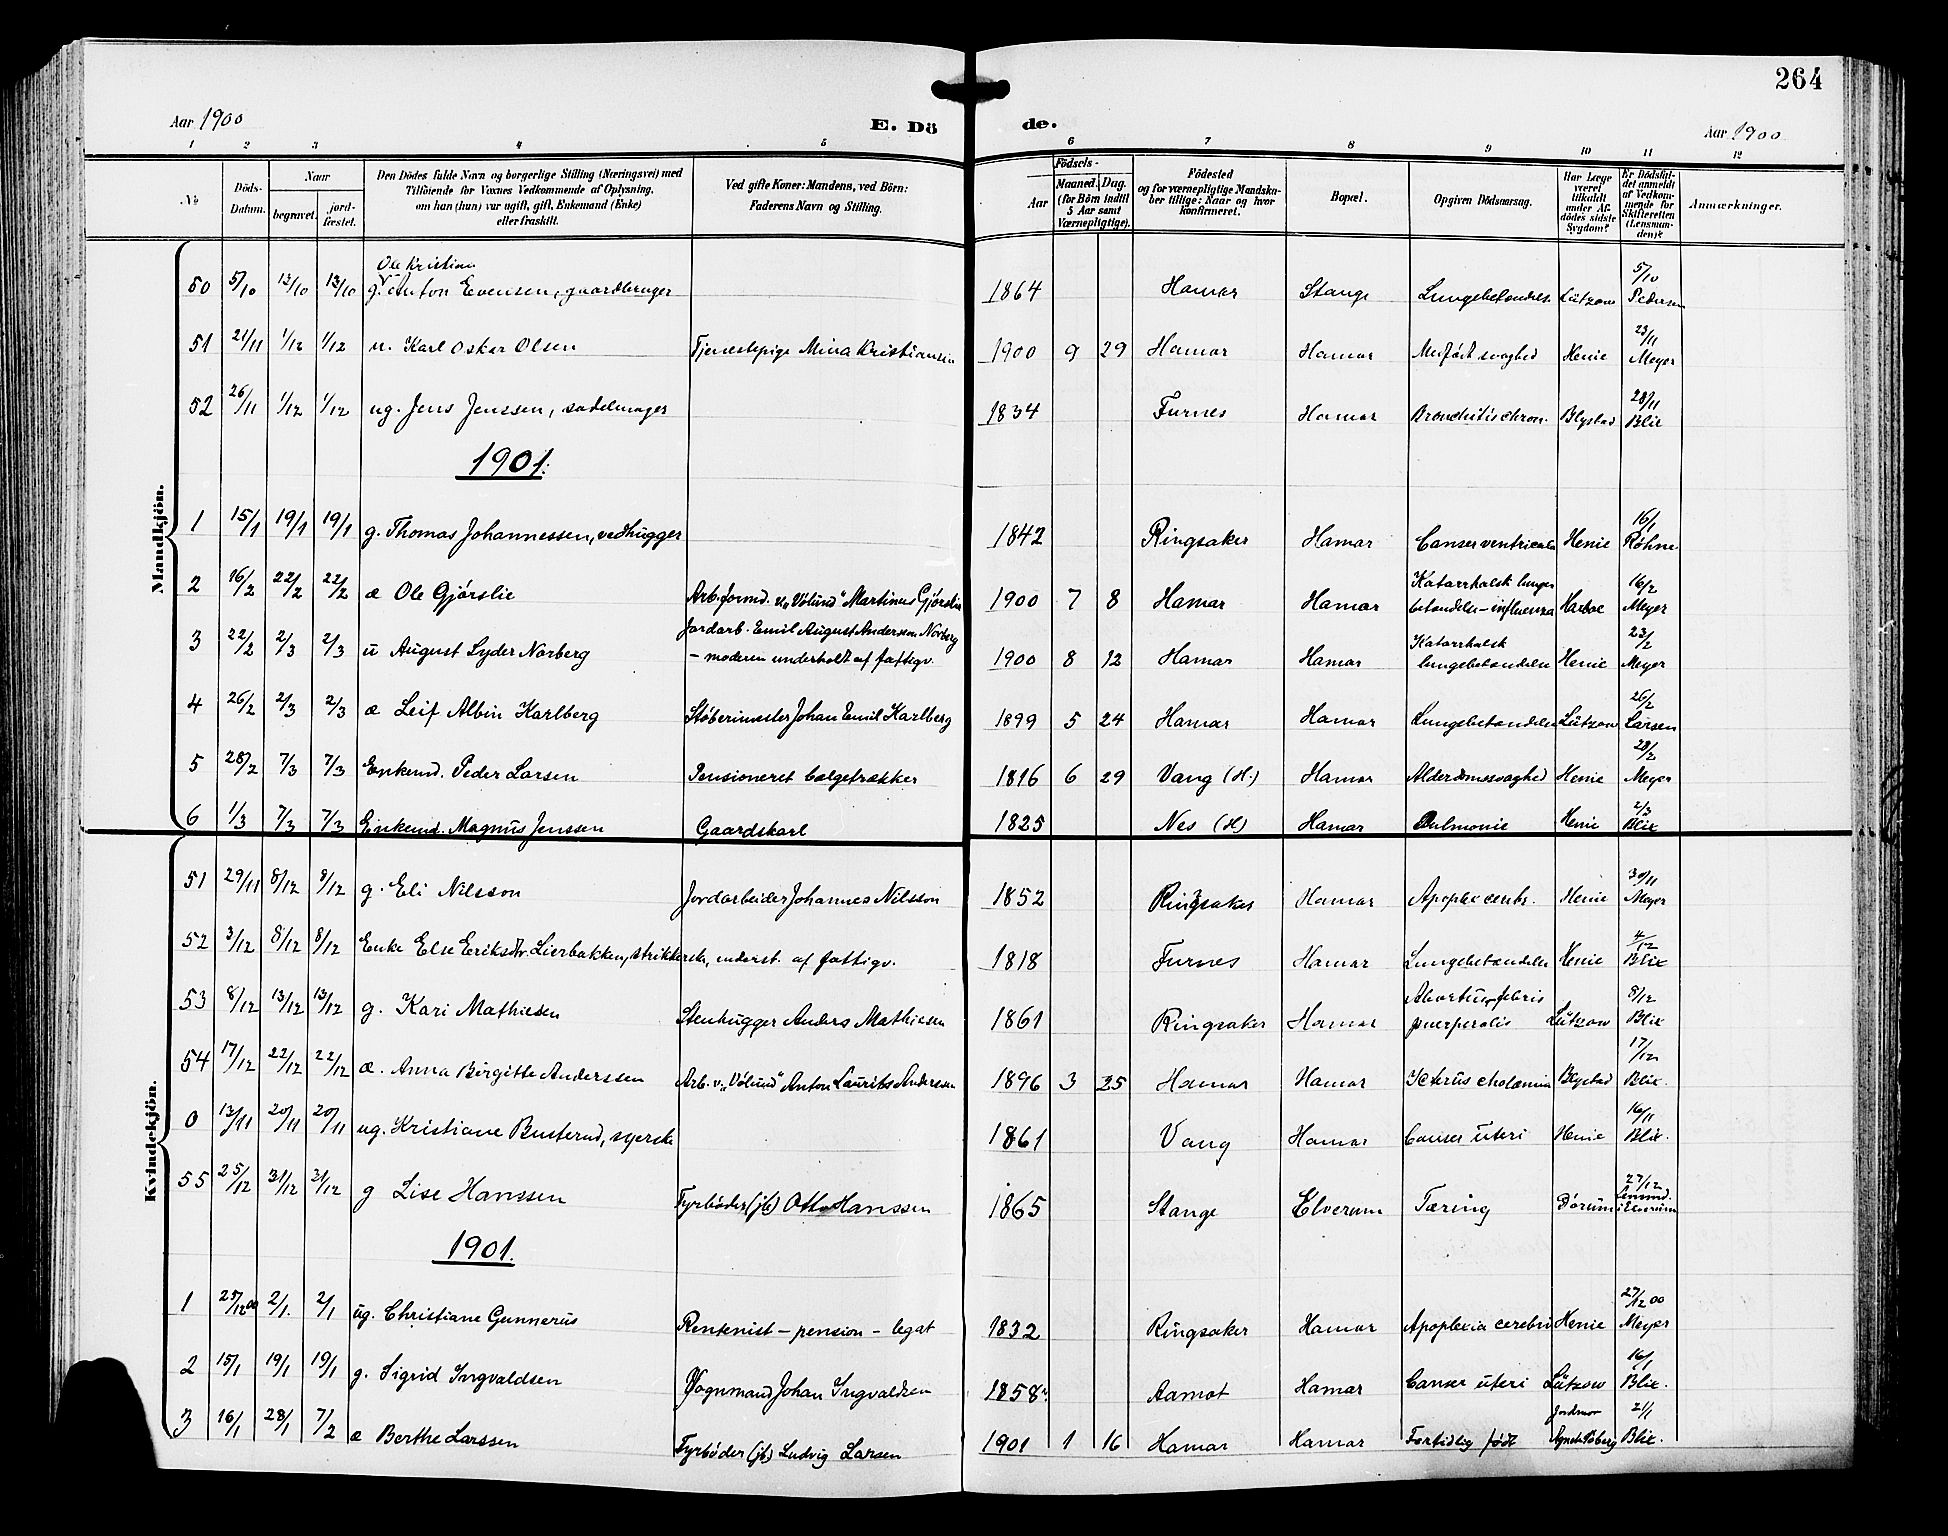 264
Aar 1900
E. Dö
de.
Aar 1900
1 2 3 4 5 6 7 8 9 10 11 12
№
Döds-Datum.
Naar
begravet.
jord-fæstet.
Den Dödes fulde Navn og borgerlige Stilling (Næringsvei) med
Tilföiende for Voxnes Vedkommende af Oplysning,
om han (hun) var ugift, gift, Enkemand (Enke)
eller fraskilt.
Ved gifte Koner: Mandens, ved Börn:
Faderens Navn og Stilling.
Födsels-
Aar
Maaned. Dag.
(for Börn indtil
5 Aar samt
Værnepligtige).
Födested
og for værnepligtige Mandska-
ber tillige: Naar og hvor
konfirmeret.
Bopæl.
Opgiven Dödsaarsag.
Har Læge
været
tilkaldt
under Af-
dödes sidste
Sygdom?
Er Dödsfal-
det anmeldt
af Vedkom-
mende for
Skifteretten
(Lensman-
den)?
Anmærkninger.
Mandkjön.
Ole Kristian
50 5/10 13/10 13/10 g. Anton Evensen, gaardbruger 1864 Hamar Stange Lungebetændels. Lützow 5/10 Pedersen
51 21/11 1/12 1/12 u. Karl Oskar Olsen Tjenestepige Mina Kristiansen 1900 9 29 Hamar Hamar Medfødt svaghed Henie 23/11 Meyer
52 26/11 1/12 1/12 ug. Jens Jenssen, sadelmager 1834 Furnes Hamar Bronchitis chron. Blystad 28/11 Blix
1901.
1 15/1 19/1 19/1 g. Thomas Johannessen, vedhugger 1842 Ringsaker Hamar Canser ventricula Henie 16/1 Røhne
2 16/2 22/2 22/2 æ Ole Gjørslie Arb.formd. v. "Vølund" Martinus Gjørslie 1900 7 8 Hamar Hamar Katarrhalsk lungebetændelse-influenza Harboe 16/2 Meyer
3 22/2 2/3 2/3 u August Lyder Norberg Jordarb. Emil August Andersen Norberg
- moderen underholdt af fattigv. 1900 8 12 Hamar Hamar Katarrhalsk lungebetændelse Henie 23/2 Meyer
4 26/2 2/3 2/3 æ Leif Albin Karlberg Støberimester Johan Emil Karlberg 1899 5 24 Hamar Hamar Lungebetændelse Lützow 26/2 Larsen
5 28/2 7/3 7/3 Enkemd. Peder Larsen Pensioneret bælgetrækker 1816 6 29 Vang (H.) Hamar Alderdomssvaghed Henie 28/2 Meyer
6 1/3 7/3 7/3 Enkemd. Magnus Jenssen Gaardskarl 1825 Nes (H) Hamar Pulmonie Henie 2/3 Blix
Kvindekjön.
51 29/11 8/12 8/12 g. Eli Nilsson Jordarbeider Johannes Nilsson 1852 Ringsaker Hamar Apoplex cerebr. Henie 30/11 Meyer
52 3/12 8/12 8/12 Enke Else Eriksdtr. Lierbakken, strikkerske, underst. af fattigv. 1818 Furnes Hamar Lungebetændelse Henie 4/12 Blix
53 8/12 13/12 13/12 g. Kari Mathiesen Stenhugger Anders Mathiesen 1861 Ringsaker Hamar Abortus, febris puerperalis Lützow 8/12 Blix
54 17/12 22/12 22/12 æ. Anna Birgitte Anderssen Arb. v. "Vølund" Anton Laurits Anderssen 1896 3 25 Hamar Hamar Icterus cholæmia Blystad 17/12 Blix.
0 13/11 20/11 20/11 ug. Kristiane Busterud, syerske 1861 Vang Hamar Canser uteri Henie 16/11 Blix.
55 25/12 31/12 31/12 g Lise Hanssen Fyrbøder (jb) Otto Hanssen 1865 Stange Elverum Tæring Dørum 27/12 Lensmd. i Elverum
1901.
1 25/12 00 2/1. 2/1 ug. Christiane Gunnerus Rentenist - pension - legat 1832 Ringsaker Hamar Apoplexia cerebri Henie 27/12 00 Meyer
2 15/1 19/1 19/1 g. Sigrid Ingvaldsen Vognmand Johan Ingvaldsen 1858 Aamot Hamar Canser uteri Lützow 16/1 Blix.
3 16/1 28/1 7/2 æ Berthe Larssen Fyrbøder (jb.) Ludvig Larsen 1901 1 16 Hamar Hamar Fortidlig født Jordmor 21/1 Blix.